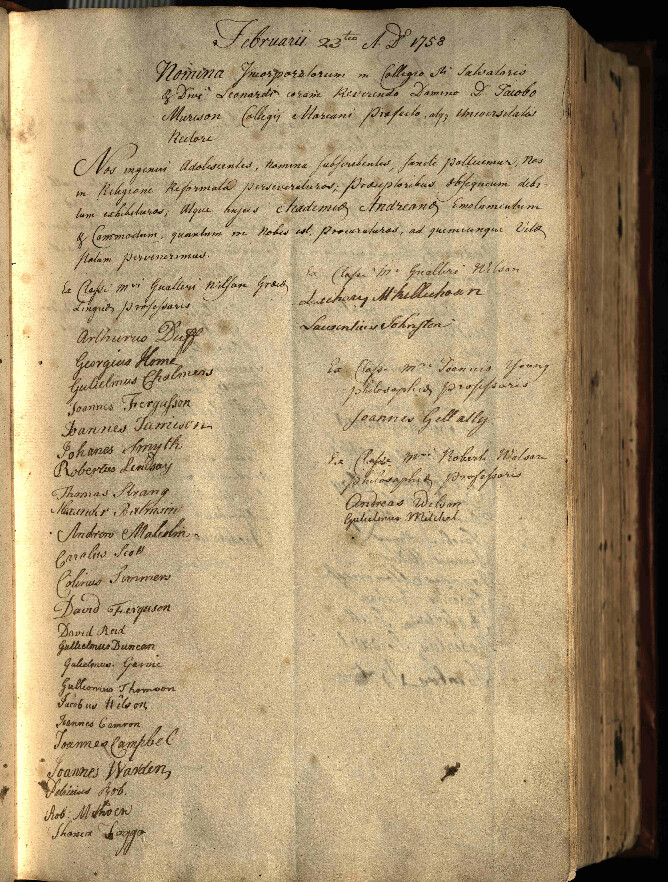 Februarii 23tio A. D. 1758
Nomina Incorporatorum in Collegio Sti Salvatoris
& Divi Leonardi coram Reverendo Domino D. Jacobo
Murison Collegij Mariani Præfecto, atq; Universitatis
Rectore
Nos ingenui Adolescentes, nomina subscribentes, sancte pollicemur, Nos
in Religione Reformata perseveraturos, Præceptoribus obsequium debi
tum exhibituros, Atque hujus Academiæ Andreanæ Emolumentum
& Commodum, quantum in Nobis est, procuraturos, ad quemcunque Vitæ
statum pervenerimus.
Ex Classe Mri Gualteri Wilson Græcæ
Linguæ Professoris
Arthurus Duff
Georgius Home
Gulielmus Chalmers
Joannes Fergusson
Joannes Jamieson
Johanes Smyth
Robertus Lindsay
Thomas Strang
Andrew Malcolm
Carolus Scott
Colinus Simmers
David Ferguson
David Reid
Gullielmus Duncan
Gulielmus Garvie
Gullielmus Thomson
Jacobus Wilson
Joannes Camron
Joannes Campbel
Joannes Warden
Rob.
Rob:
Ex Classe Mri Gualteri Wilson
Laurentius Johnston
Ex Classe Mri Joannis Young
philosophiæ professoris
Joannes Gellatly
Ex Classe Mri Roberti Watson
philosophiæ professoris
Andreas Wilson
Gulielmus Mitchel